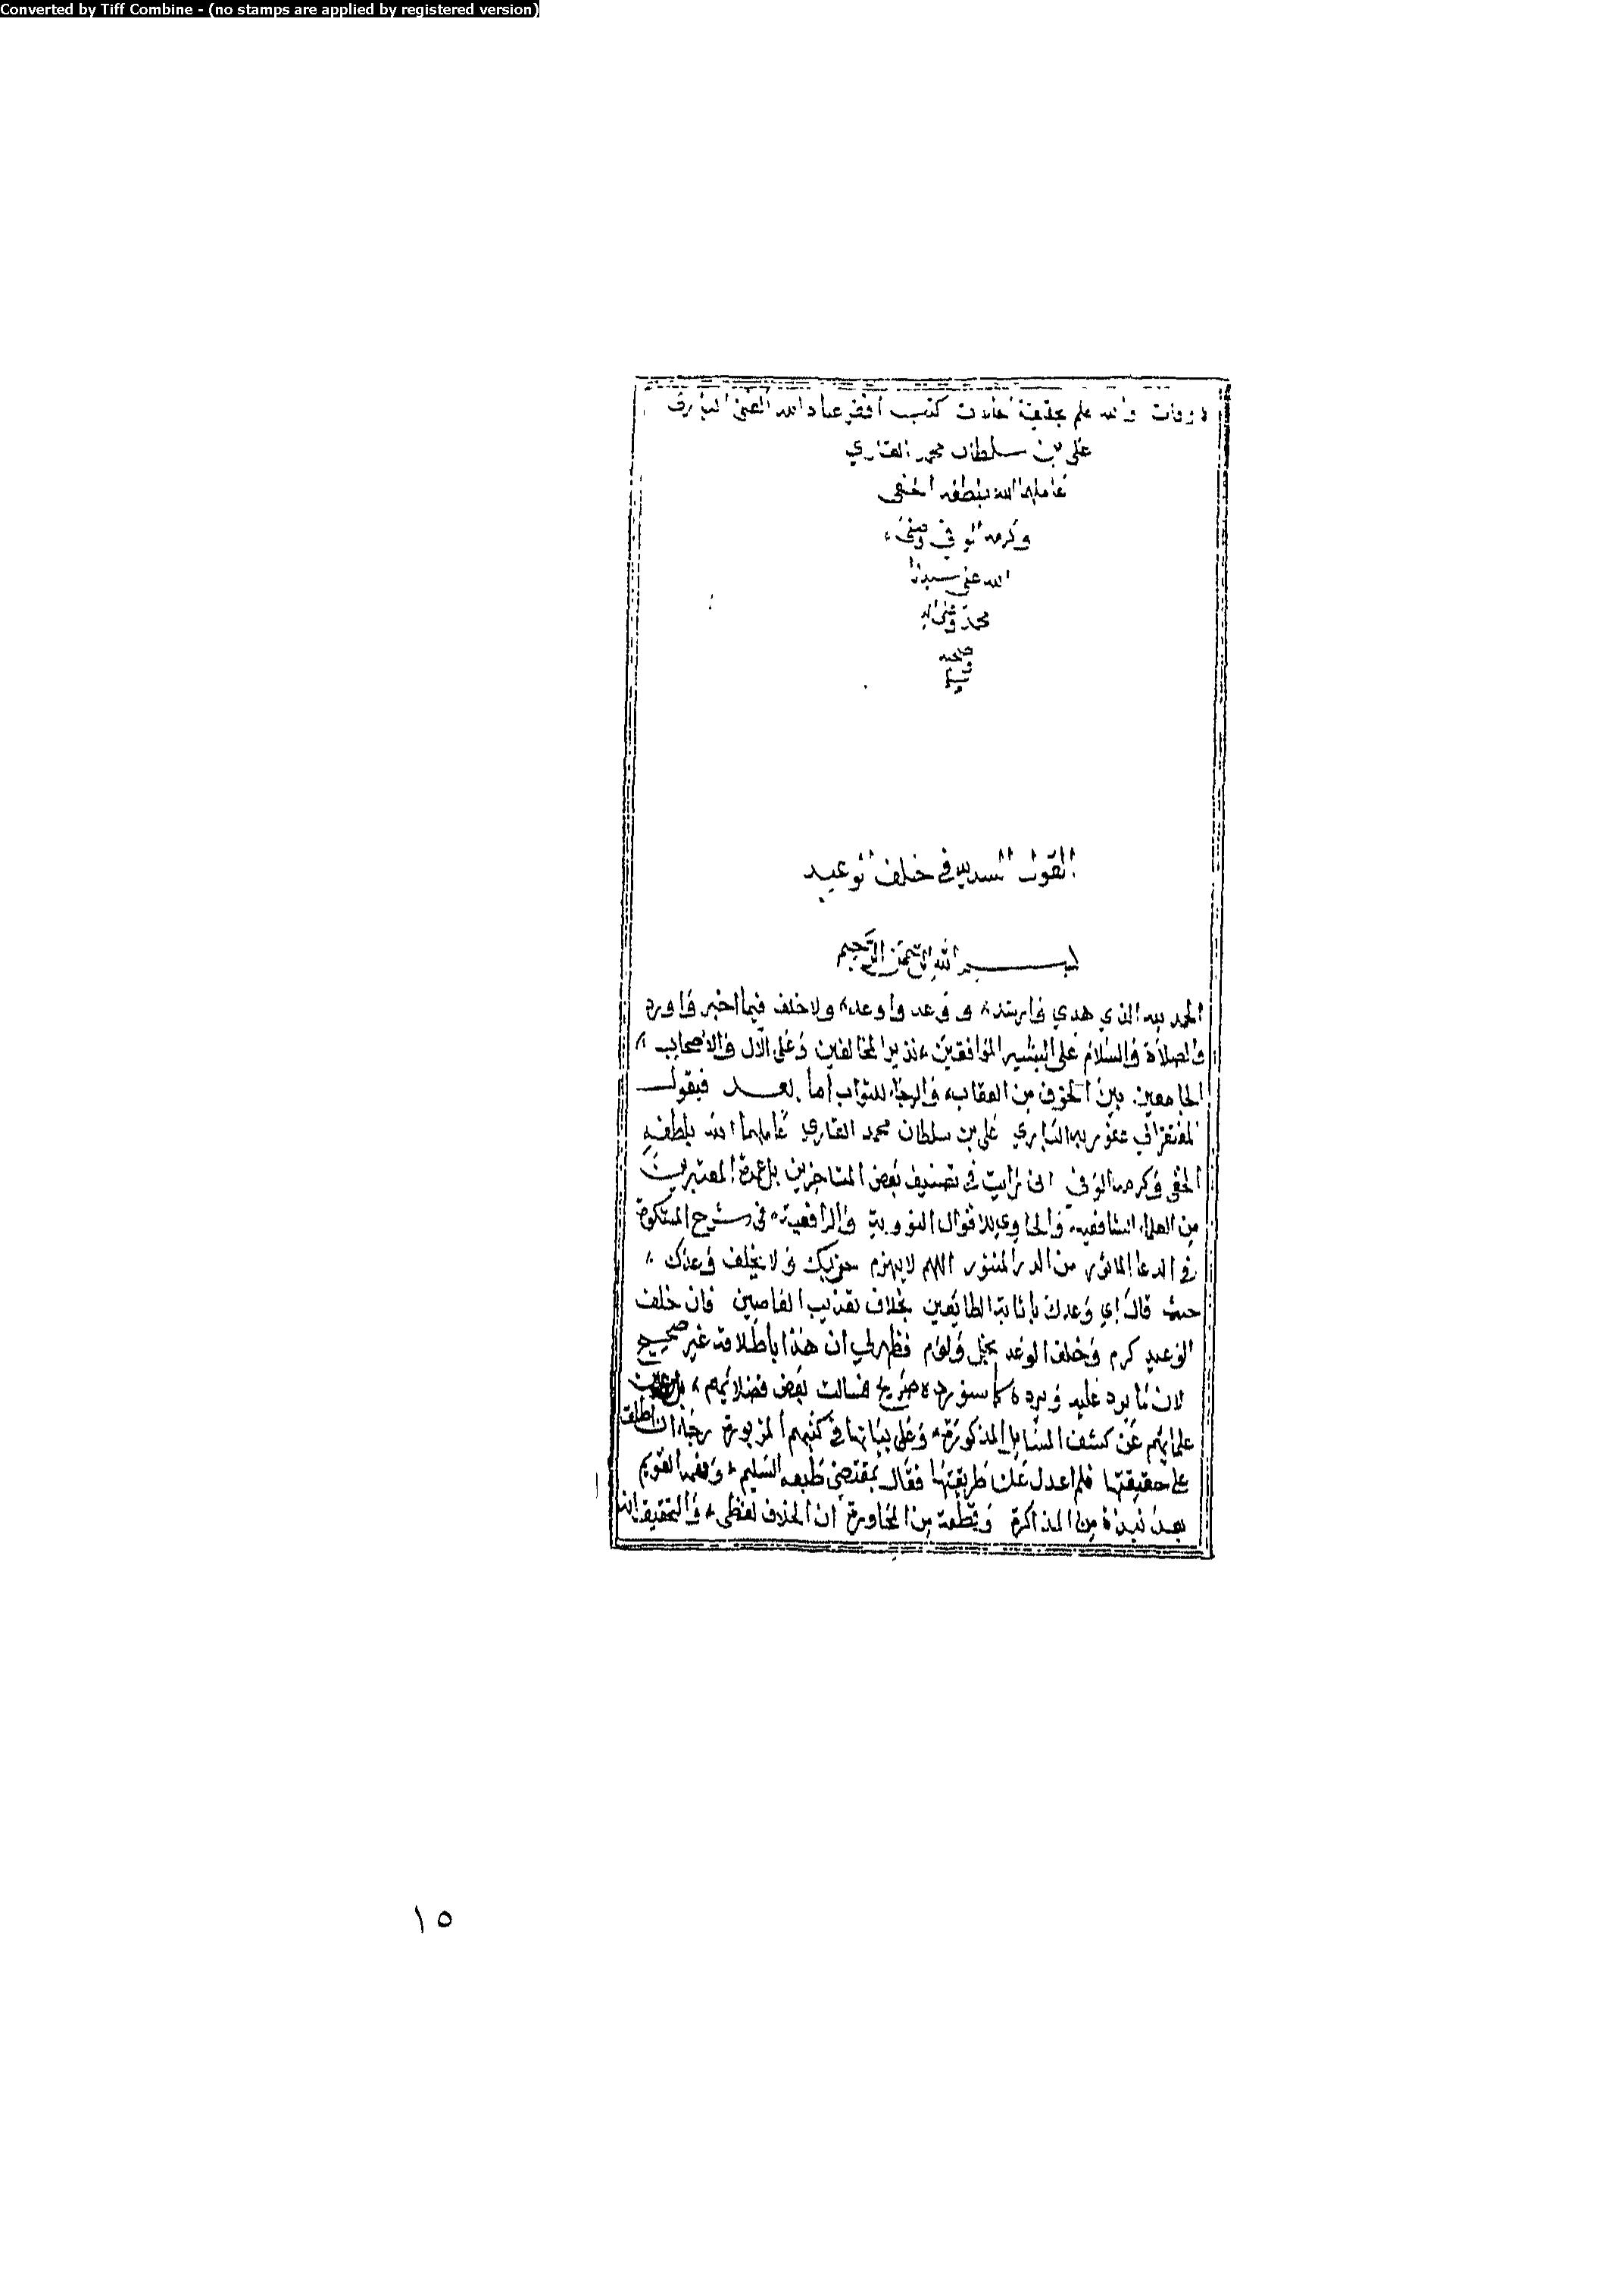 Converted by Tiff Combine - (no stamps are applied by registered version)
والله اعلم بحقيقة الحالات كتبه أفقر عباد الله الغني الباري
علي بن سلطان محمد القاري
عاملهما الله بلطفه الخفي
وكرمه الوفي وصلى
الله على سيدنا
محمد وعلى اله
وصحبه
وسلم
القول السديد في خلف الوعيد
بسم الله الرحمن الرحيم
الحمد لله الذي هدي وارشد ووعد واوعد ولا خلف فيما اخبر واورد
والصلاة والسلام على البشير الموافقين نذير المخالفين وعلى الآل والاصحاب
الجامعين بين الخوف من العقاب والرجاء للثواب أما بعد فيقول
المفتقر الي عفو ربه الباري علي بن سلطان محمد القاري عاملهما الله بلطفه
الخفي وكرمه الوفي اني رايت في تصنيف بعض المتاخرين بل عمدة المعتبرين
من العلماء الشافعيه والحاوي للاقوال النووية والرافعية في شرح المشكوة
في الدعا الماثور من الدر المنثور اللهم لا يهزم جندك ولا يخلف وعدك
حيث قال اي وعدك باثابة الطائعين بخلاف تعذيب العاصين فان خلف
الوعيد كرم وخلف الوعد بخل ولوم فظهر لي ان هذا باطلاقه غير صحيح
لان ما يرد عليه ويرده كما سنورده صريح فسالت بعض فضلائهم
علمائهم عن كشف المسايل المذكورة وعلى بيانها في كتبهم المزبورة رجاء ان اطلع
على حقيقتها فلم اعدل عن طريقتها فقال بمقتضى طبعه السليم وفهمه القويم
بعد نبذة من المذاكرة وقطعة من المحاورة ان الخلاف لفظي والتحقيق
١٥